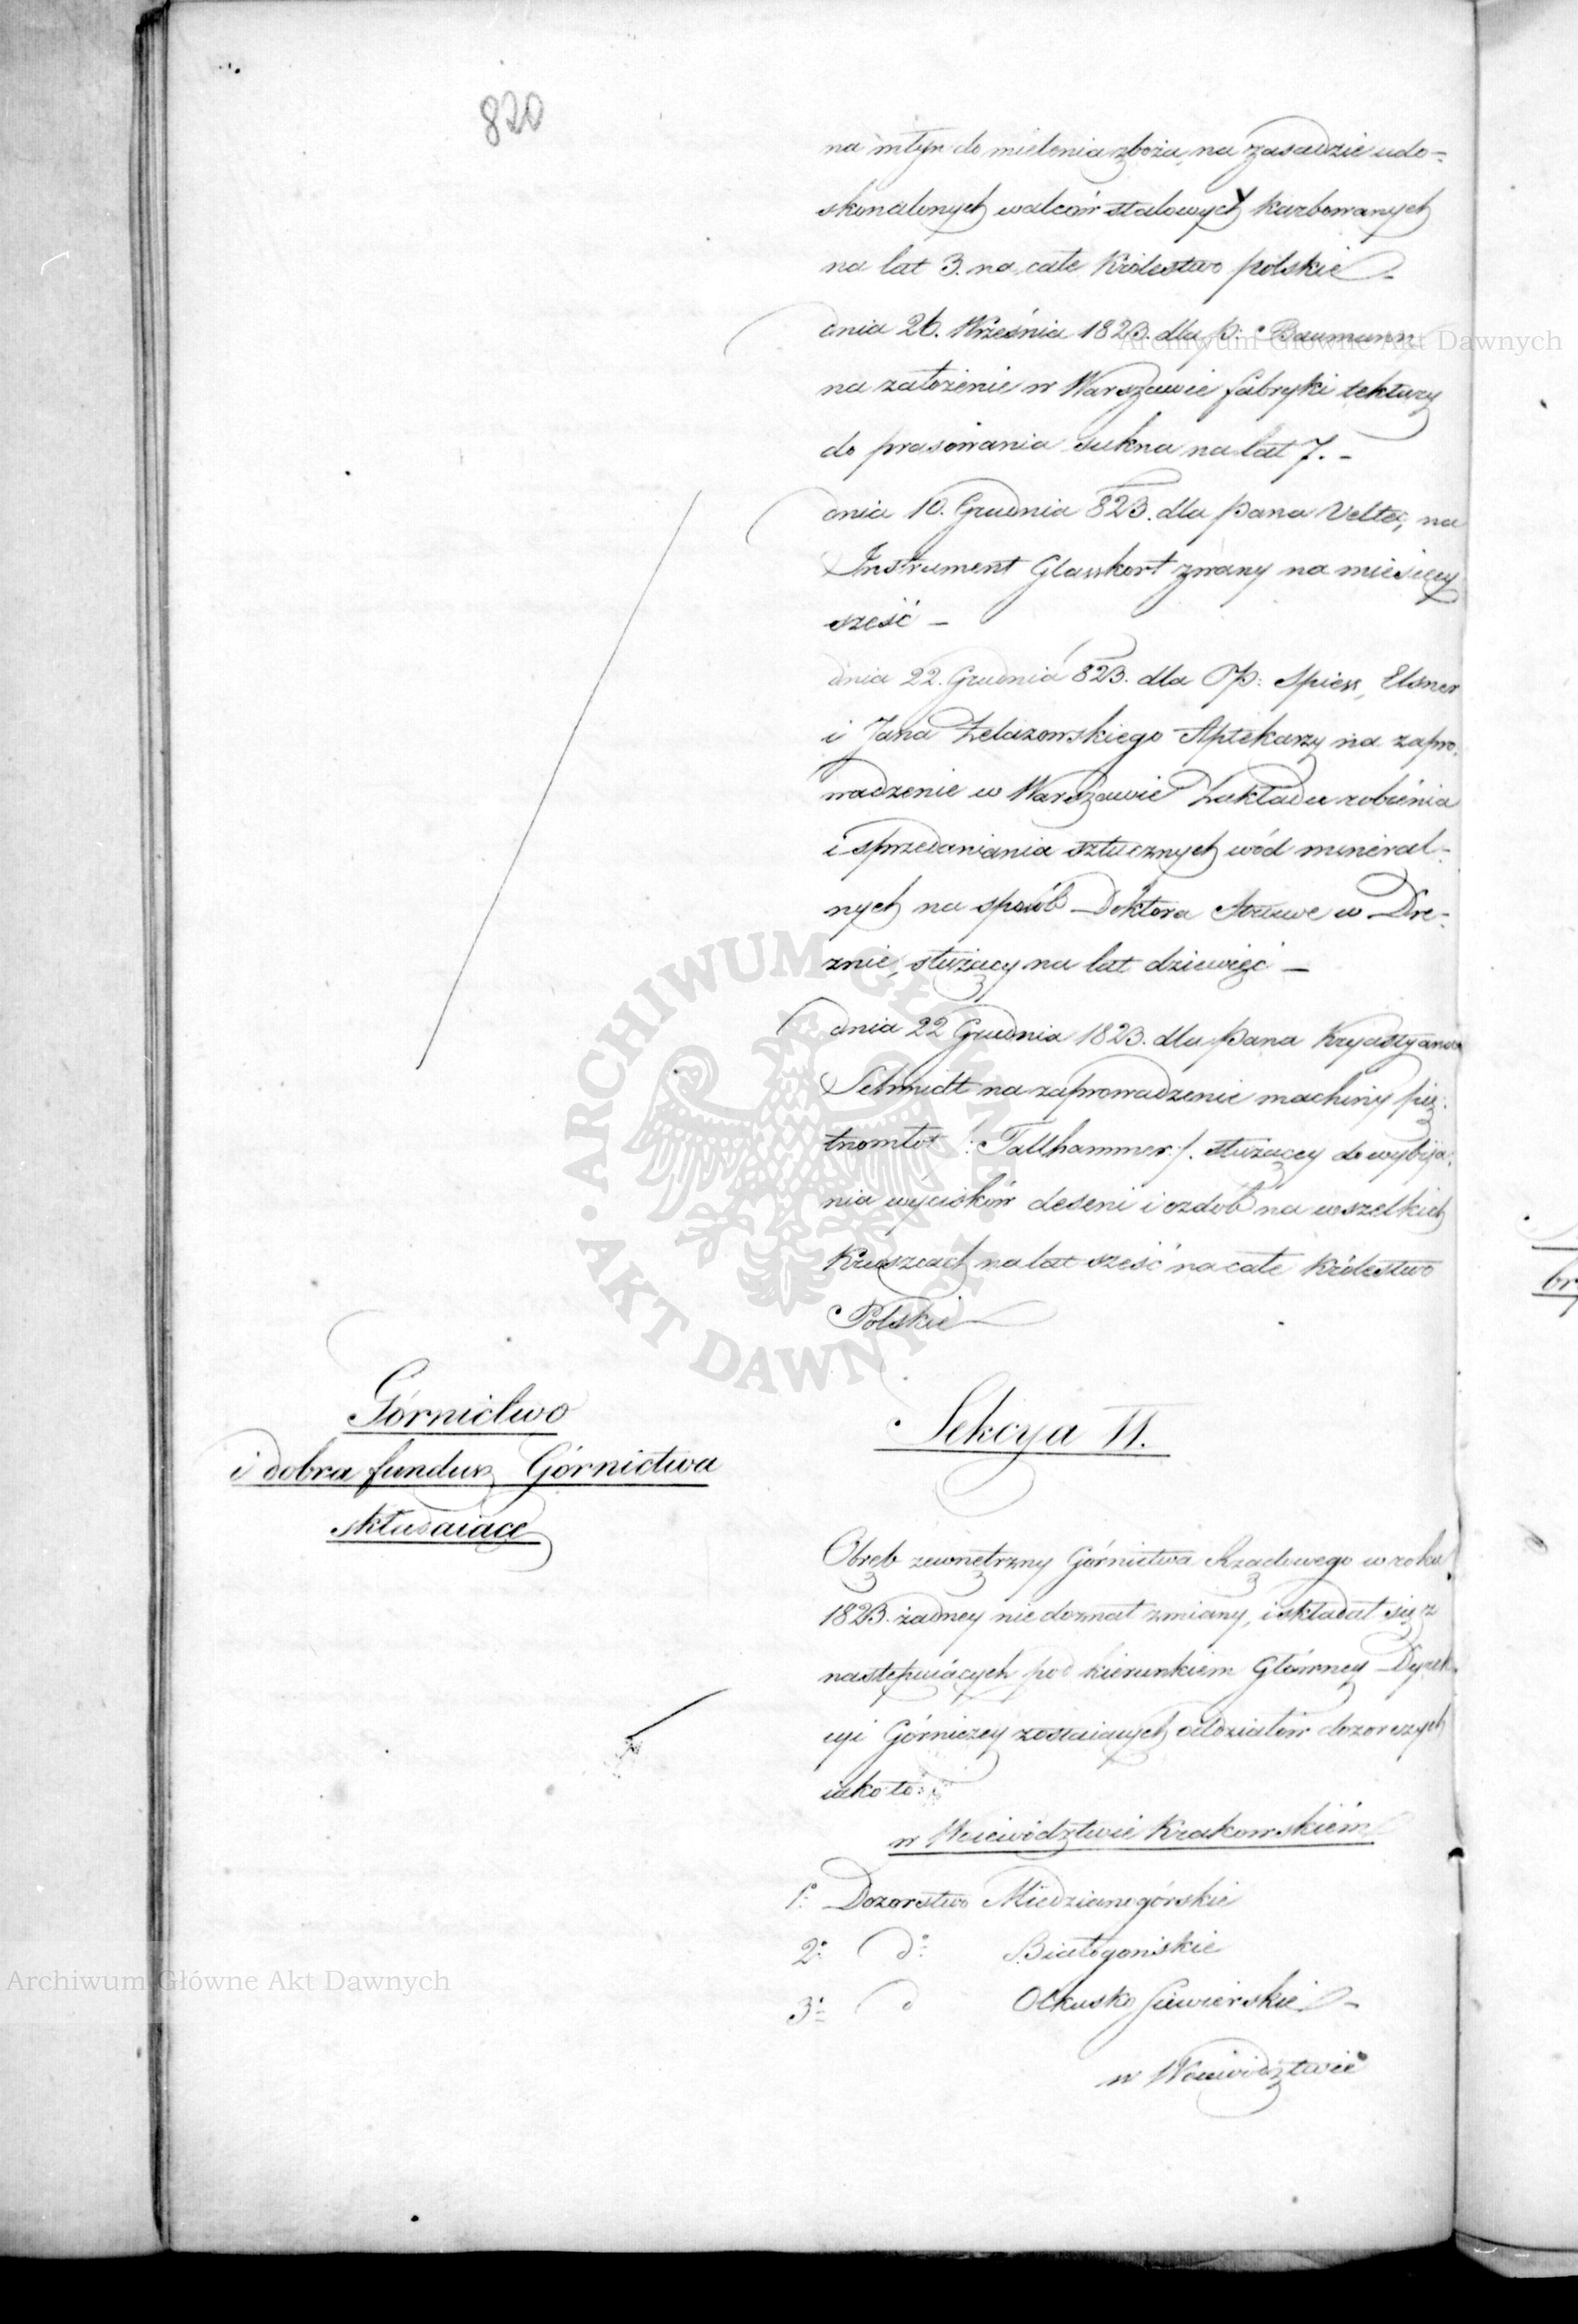 820
na młyn do mielenia zboża, na zasadzie udo-
skonalonych walców stalowych karbowanych
na lat 3. na całe Królestwo polskie -
dnia 26. Września 1823. dla p: Baumann
na założenie w Warszawie fabryki tektury
do prasowania sukna na lat 7. -
dnia 10. Grudnia 823. dla pana Velte, na
Instrument Glasskort zwany na miesięcy
sześć -
dnia 22. Grudnia 823. dla PP: Spiess, Elsner
i Jana Żelazowskiego Aptekarzy na zapro-
wadzenie w Warszawie Zakładu robienia
i sprzedawania sztucznych wód mineral-
nych na sposób Doktora Struwe w Dre-
znie, służący na lat dziewięć -
dnia 22 Grudnia 1823. dla pana Krystyana
Schmidt na zaprowadzenie machiny pię-
tnomłot /: Fallhammer :/. służącey do wybija-
nia wycisków deseni i ozdób na wszelkich
Kruszcach na lat sześć na całe Królestwo
Polskie
Górnictwo
i dobra fundusz Górnictwa
składaiące
Sekcya II.
Obręb zewnętrzny Górnictwa Rządowego w roku
1823. żadney nie doznał zmiany, i składał się z
następuiących pod kierunkiem Główney Dyrek-
cyi Górniczey zostaiących oddziałów dozorczych
iako to:
w Woiewództwie Krakowskiém
1° Dozorstwo Miedzianogórskie
2° d° Białogońskie
3° d Olkusko Siewierskie -
w Woiewództwie
Archiwum Główne Akt Dawnych
Archiwum Główne Akt Dawnych
ARCHIWUM GŁÓWNE AKT DAWNYCH